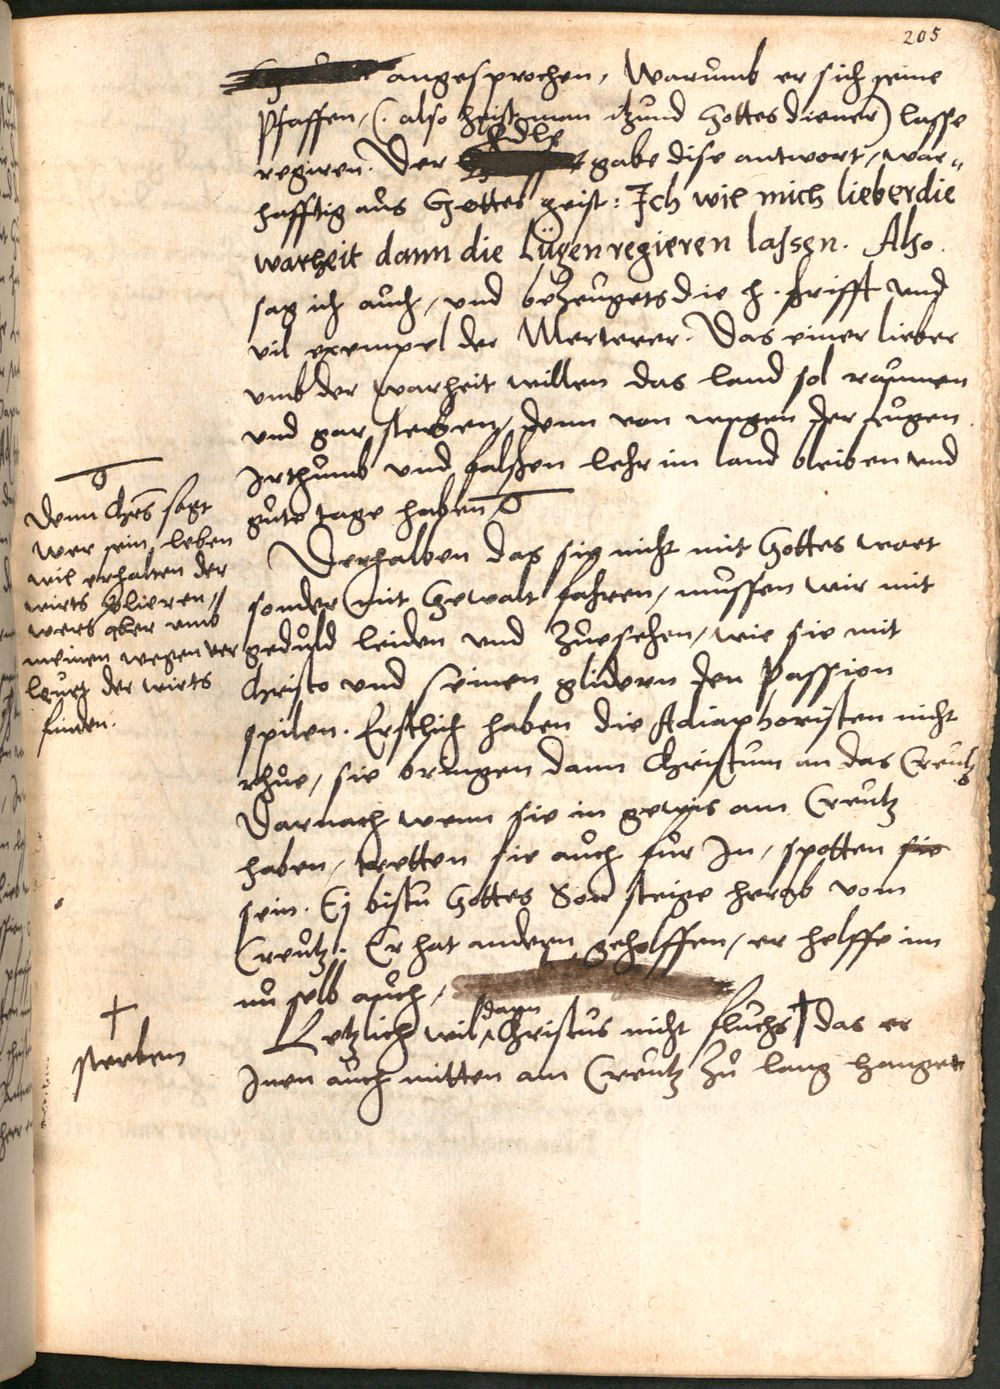 205
angesprochen, Warumb er sich seine
Pfaffen, (. also heist man itzund Gottes diener) lasse
regiren. Der Edle gabe dise antwort, war-
hafftig aus Gottes geist: Ich wil mich lieber die
warheit dann die Lügen regieren lassen. Also
sag ich auch, und bezeugets die h. schrifft und
vil exempel der Merterer. Das einer lieber
umb der warheit willen das land sol raumen
und gar sterben, denn von wegen der lugen
Irthumb und falschen lehr im land bleiben und
gute tage haben
Denn Chrs sagt
Wer sein leben
wil erhalten der
wirts
wers aber umb
meinen wegen ver
leurt der wirts
finden.
Derhalben das sie nicht mit Gottes wort
sonder mit Gewalt fahren, mussen wir mit
geduld leiden und zusehen, wie sie mit
Christo und seinen glidern den Passion
spilen. Erstlich haben die Adiaphoristen nicht
rhue, sie bringen dann Christum an das Creutz
Darnach wenn sie in gewis am Creutz
haben, tretten sie auch fur In, spotten sie
sein. Ej bistu Gottes Son steige herab vom
Creutz. Er hat andern geholffen, er helffe im
nu selb auch,
Letzlich wil dann Christus nicht fluchs † das er
Inen auch mitten am Creutz zu lang hanget
†
sterben